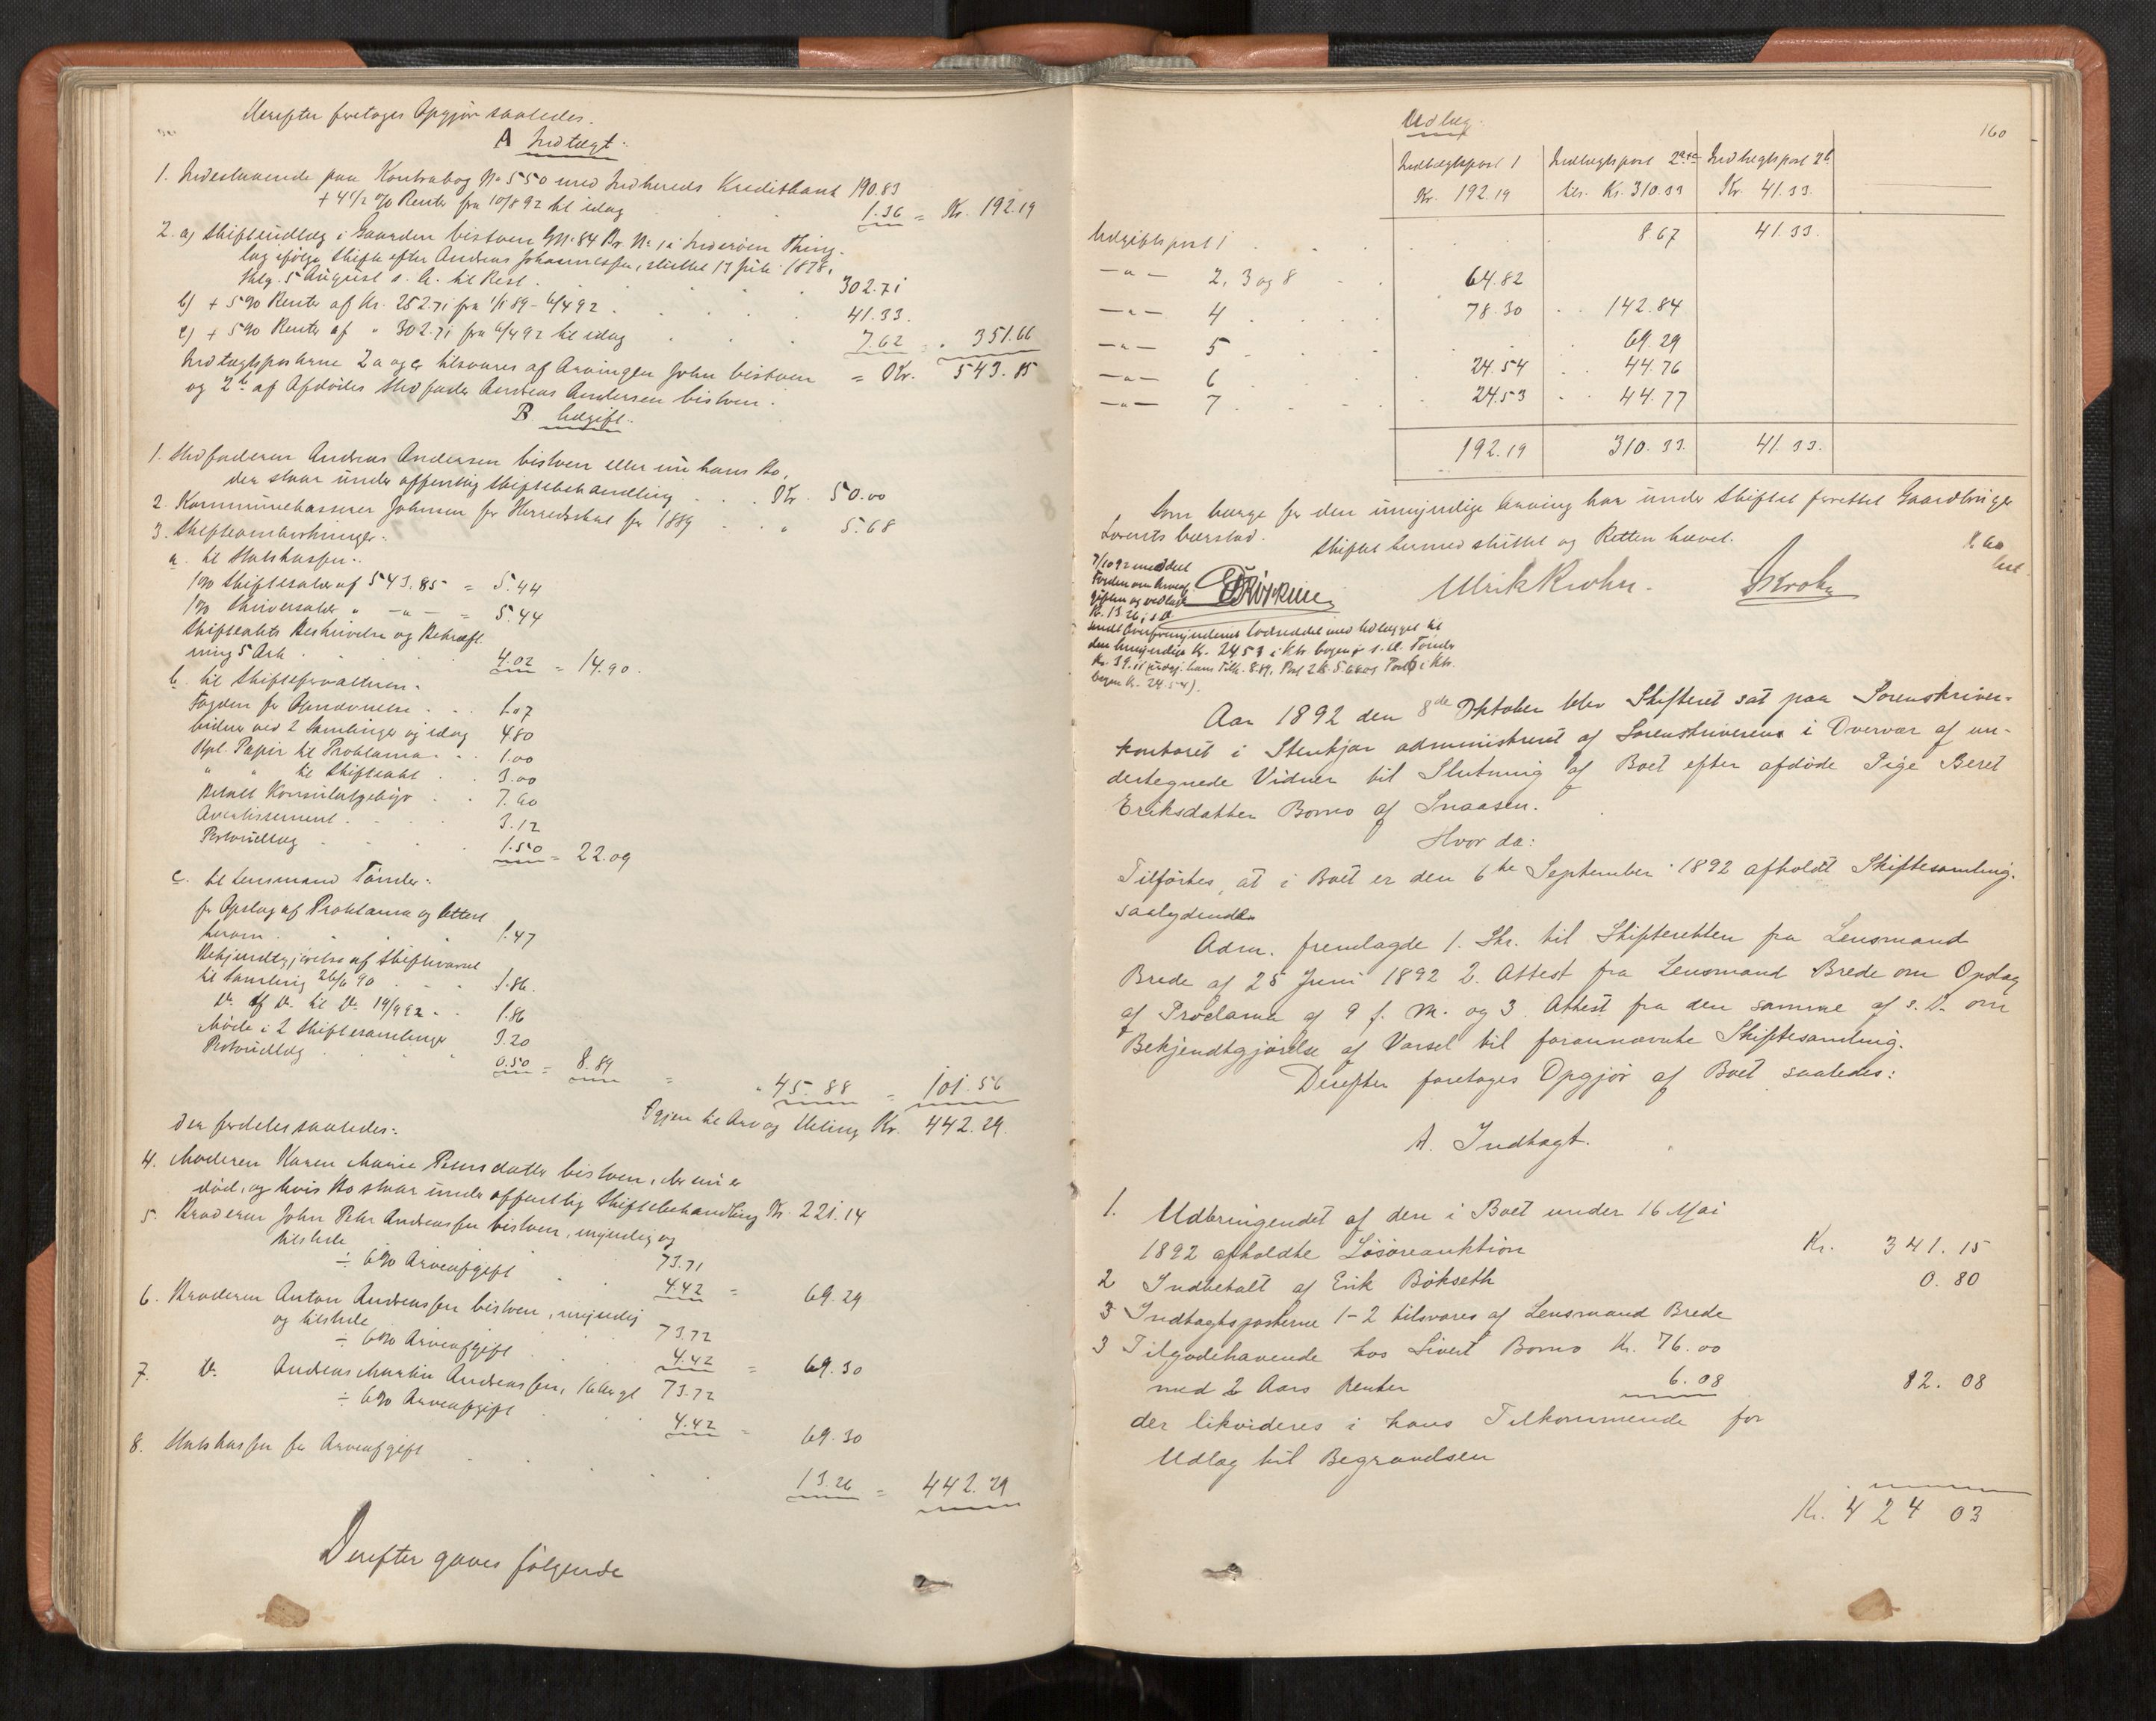 Derefter foretoges Opgjør saaledes.
A Indtægt.
1. Indestaaende paa Kontrabog No 550 med Indherreds Kreditbank 190.83
+ 4 1/2 % Renter fra 10/8 92 til idag 1.36 = Kr. 192.19
2. a) Skifteudlæg i Gaarden Bistven GNo 84 Br. No 1 i Inderøen Thing-
lag ifølge Skifte efter Andreas Johannessen, sluttet 13 Juli 1878,
thlg. 5 August s. A. til Rest 302.71
b) + 5 % Renter af Kr. 252.71 fra 1/1 89 - 6/4 92 41.33.
c) + 5 % Renter af " 302.71 fra 6/4 92 til idag 7.62 = " 351.66
= Kr. 543.85
Indtægtsposterne 2 a og c tilsvares af Arvingen John Bistven
og 2 b af Afdødes Stedfader Andreas Andersen Bistven.
B Udgift.
1. Stedfaderen Andreas Andersen Bistven eller nu hans Bo,
der staar under offentlig Skiftebehandling Kr. 50.00
2. Kommunekasserer Johnsen for Herredsskat for 1889 " 5.68
3. Skifteomkostninger:
a. til Statskassen:
1 % Skiftesalær af 543.85 = 5.44
1 % Skriversalær " -"- = 5.44
Skifteaktens Beskrivelse og Bekræft-
ning 5 Ark 4.02 = 14.90.
b. til Skifteforvalteren:
Fogden for Opnævnelse 1.07
Vidner ved 2 Samlinger og idag 4.80
Stpl. Papir til Proklama 1.00
" " til Skifteakt 3.00
Betalt Konsulatgebyr 7.60
Avertissement 3.12
Portoudlæg 1.50 = 22.09
c. til Lensmand Tønder:
for Opslag af Proklama og Attest
herom 1.47
Bekjendtgjørelse af Skiftevarsel
til Samling 26/6 90 1.86.
Do. af Do. til Do. 19/9 92 1.86
Møde i 2 Skiftesamlinger 3.20
Portoudlæg 0.50 = 8.89 = " 45.88 = 101.56
Igjen til Arv og Deling Kr. 442.29.
der fordeles saaledes:
4. Moderen Karen Marie Petersdatter Bistven, der nu er
død, og hvis Bo staar under offentlig Skiftebehandling Kr. 221.14
5. Broderen John Peter Andreassen Bistven, myndig og
tilstede 73.71
÷ 6 % Arveafgift 4.42 = 69.29
6. Broderen Anton Andreassen Bistven, myndig
og tilstede 73.72
÷ 6 % Arveafgift 4.42 = 69.30
7. Do. Andreas Martin Andreassen, 16 Aar gl 73.72
÷ 6 % Arveafgift 4.42 = 69.30
8. Statskassen for Arveafgift 13.26 = 442.29
Derefter gaves følgende
160
Udlæg.
Indtægtspost 1 Indtægtspost 2 a + c Indtægtspost 2 b
Kr. 192.19 tils. Kr. 310.33 Kr. 41.33.
Udgiftspost 1 8.67 41.33.
-"- 2, 3 og 8 64.82
-"- 4 78.30 142.84
-"- 5 69.29
-"- 6 24.54 44.76
-"- 7 24.53 44.77
192.19 310.33. 41.33.
Som Værge for den umyndige Arving har under Skiftet førettet Gaardbruger
Lorents Værstad.
Skiftet hermed sluttet og Retten hævet.
7/10 92 meddelt
Fogden om Arveaf
giften og vedlagt
Kr. 13.26 i s. D.
Ulrik Krohn. Krohn
sendt Overformynderiet Lodseddel med Udlægget til
den Umyndige Kr. 24.53 i Kbs bogen s. D. Tønder
Kr. 39.11 (udgj. hans Tilk. 8.89, Post 2 K. 5.68 og Post 6 i Kbs.
bogen Kr. 24.54).
Aar 1892 den 8de Oktober blev Skifteret sat paa Sorenskriver-
kontoret i Stenkjær administreret af Sorenskriveren i Overvær af un-
dertegnede Vidner til Slutning af Boet efter afdøde Pige Beret
Eriksdatter Bomo af Snaasen.
Hvor da:
Tilførtes, at i Boet er den 6te September 1892 afholdt Skiftesamling.
saalydende
Adm. fremlagde 1. Skr. til Skifteretten fra Lensmand
Brede af 25 Juni 1892 2. Attest fra Lensmand Brede om Opslag
af Proclama af 9 f. M. og 3. Attest fra den samme af s. D. om
Bekjendtgjørelse af Varsel til forannævnte Skiftesamling.
Derefter foretoges Opgjør af Boet saaledes:
A. Indtægt.
1. Udbringendet af den i Boet under 16 Mai
1892 afholdte Løsøreauktion Kr. 341.15
2 Indbetalt af Erik Bökseth 0.80
3 Indtægtsposterne 1-2 tilsvares af Lensmand Brede
3 Tilgodehavende hos Sivert Bomo Kr. 76.00
med 2 Aars Renter 6.08 82.08
der likvideres i hans Tilkommende for
Udlæg til Begravelsen
Kr. 424 03